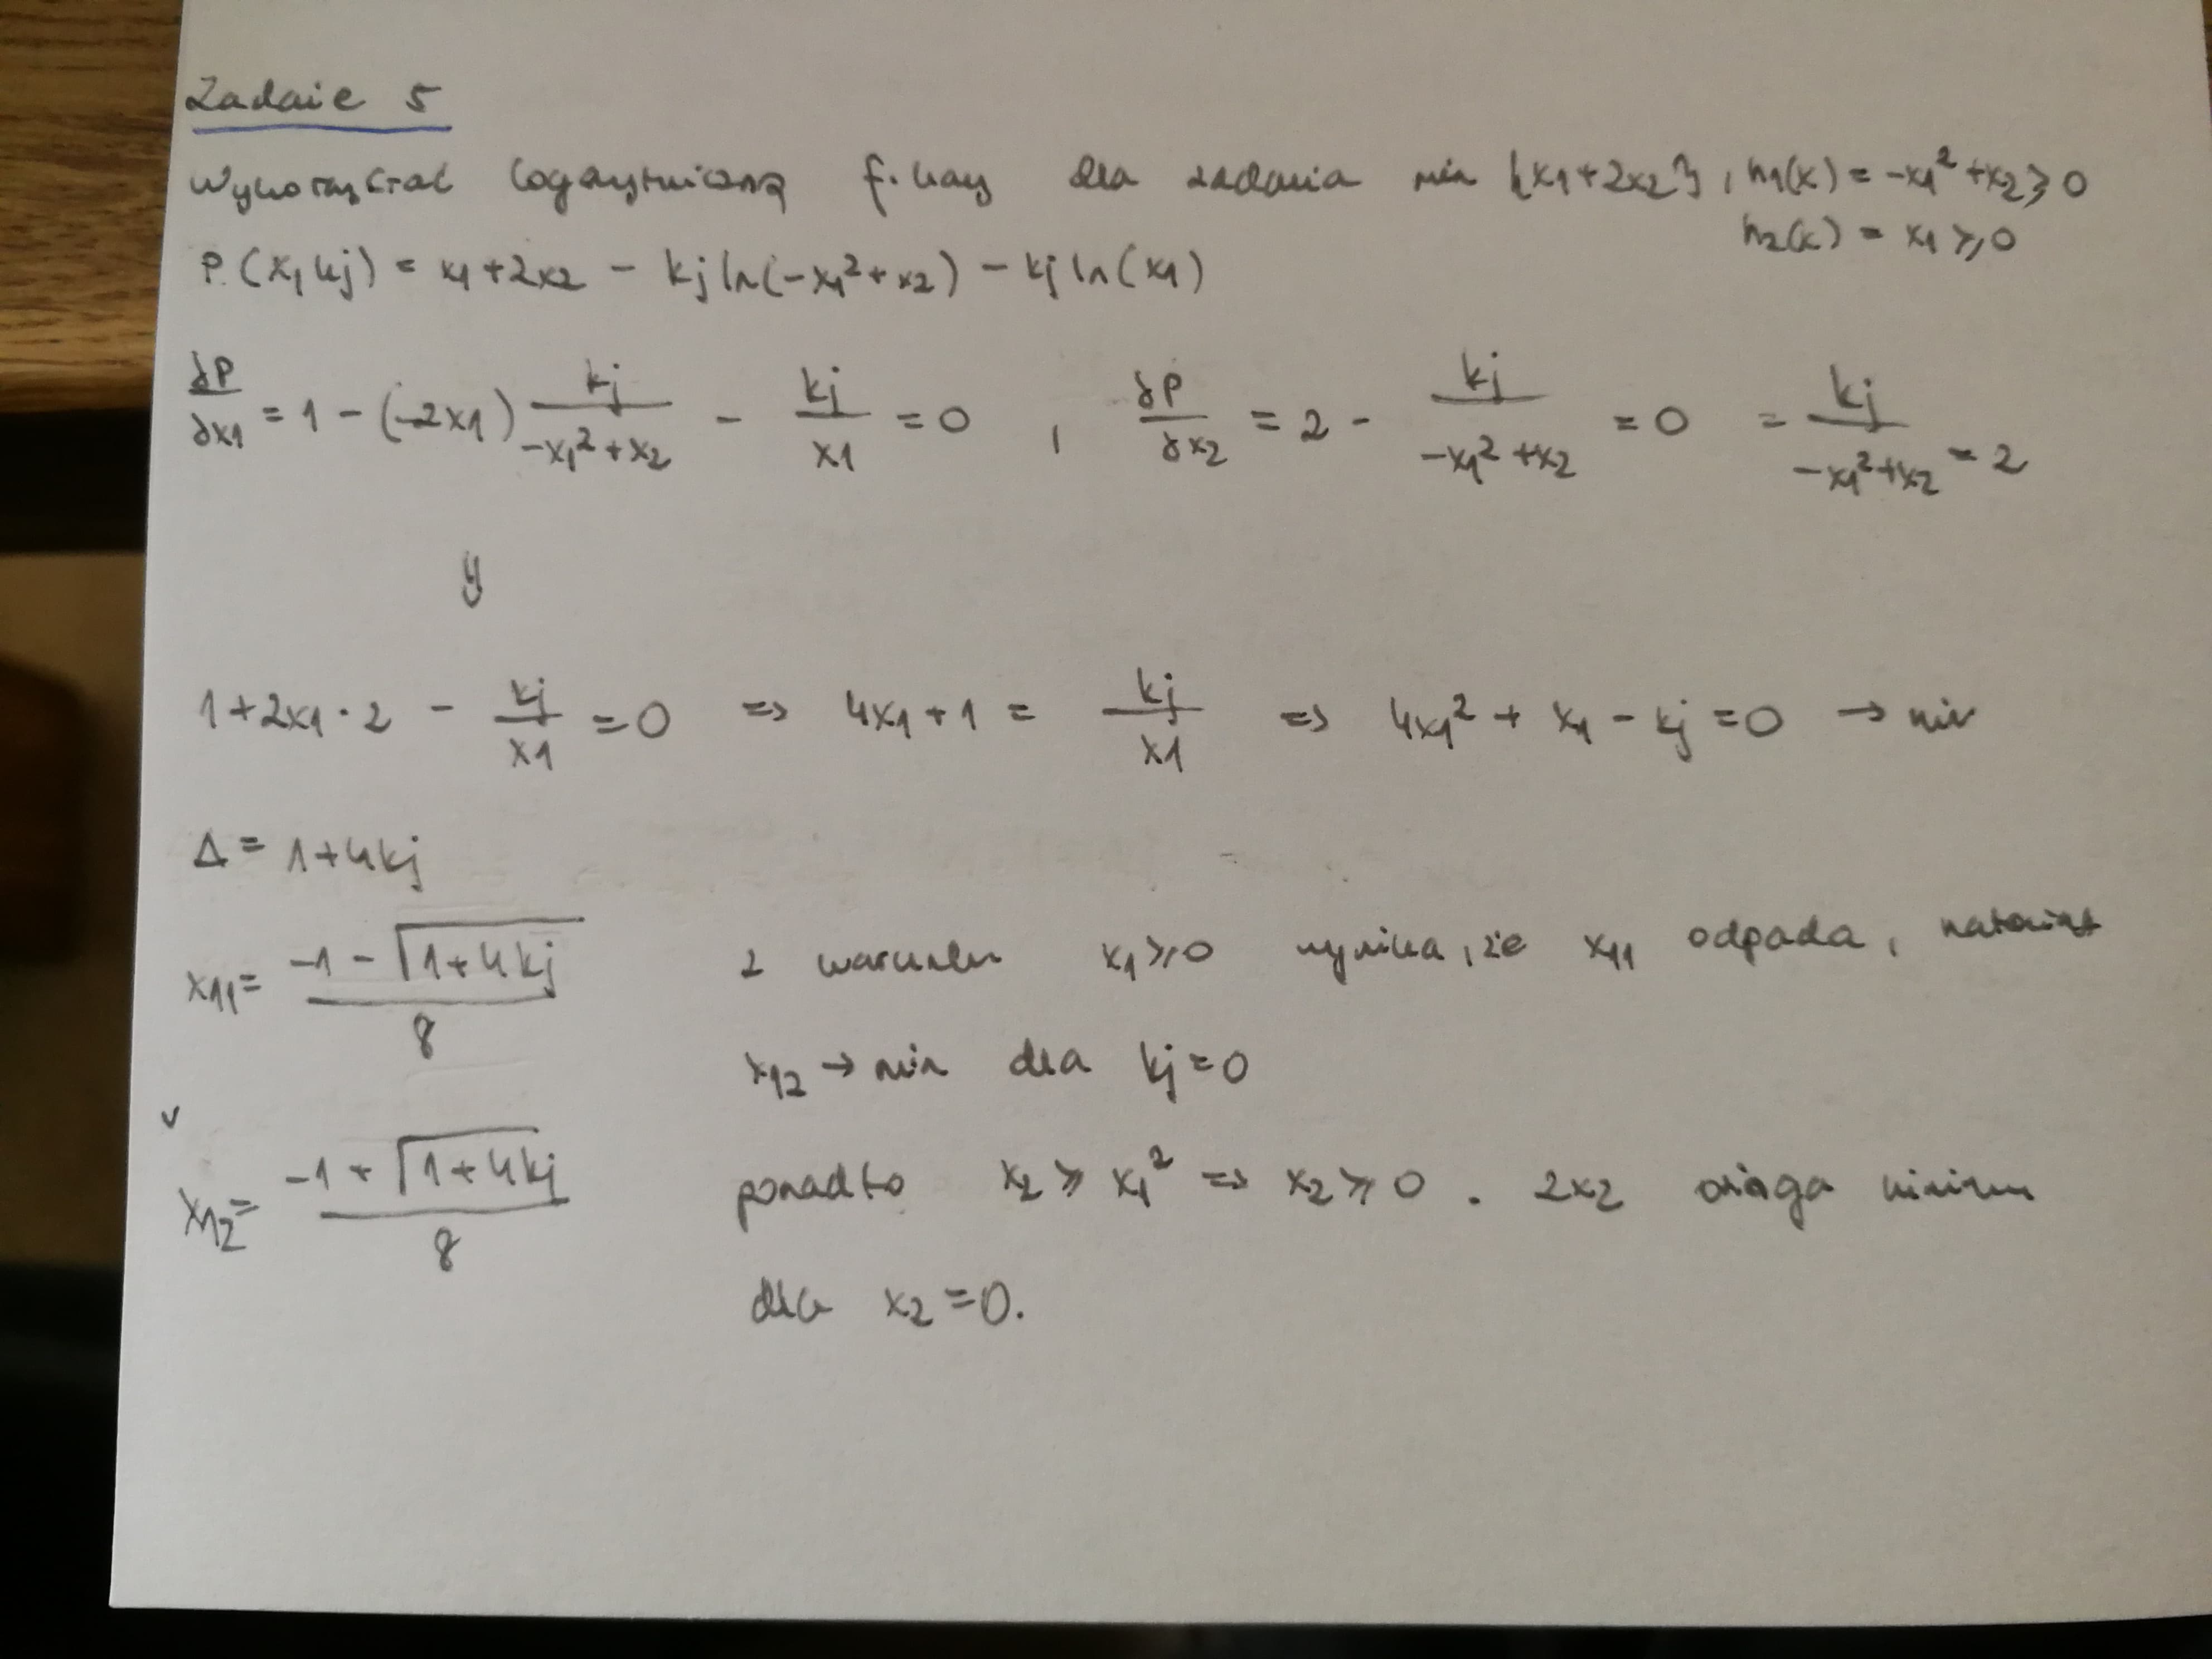 Zadaie 5
Wykorzystać logarytmiczną f. kary dla zadania min {x1+2x2}, h1(x) = -x1² + x2 ⩾ 0
h2(x) = x1 ⩾ 0
P(x, kj) = x1 + 2x2 - kj ln(-x1² + x2) - kj ln(x1)
∂P/∂x1 = 1 - (-2x1) kj/(-x1² + x2) - kj/x1 = 0 , ∂P/∂x2 = 2 - kj/(-x1² + x2) = 0 = kj/(-x1² + x2) = 2
⇓
1 + 2x1 · 2 - kj/x1 = 0 => 4x1 + 1 = kj/x1 => 4x1² + x1 - kj = 0 → min
Δ = 1 + 4kj
x11 = (-1 - √(1+4kj))/8 z warunku x1 ⩾ 0 wynika, że x11 odpada, natomiast
x12 → min dla kj = 0
v
x12 = (-1 + √(1+4kj))/8 ponadto x2 ⩾ x1² => x2 ⩾ 0 . 2x2 osiąga minimum
dla x2 = 0.